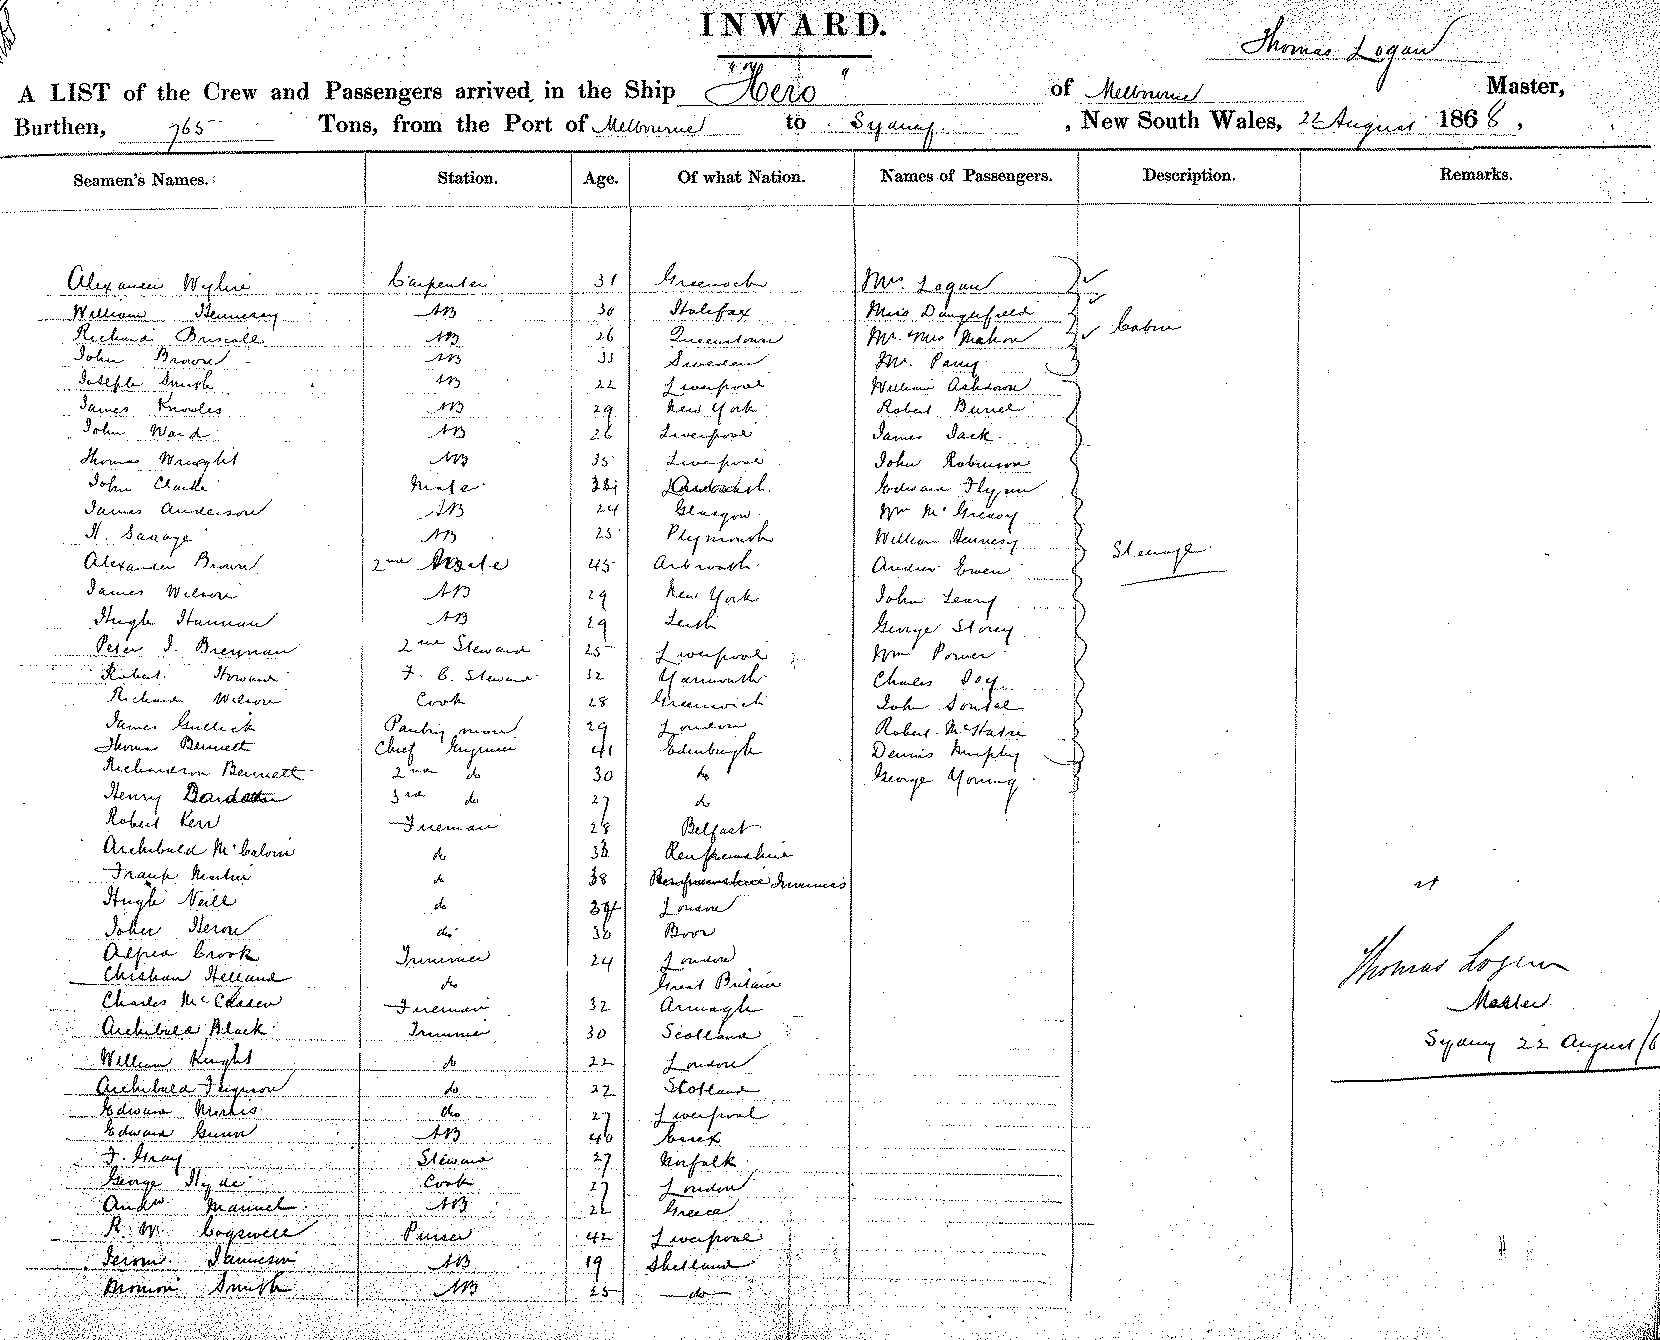 INWARD.
Thomas Logan
A LIST of the Crew and Passengers arrived in the Ship "Hero" of Melbourne Master,
Burthen, 765 Tons, from the Port of Melbourne to Sydney, New South Wales, 22 August 1868,
Seamen's Names. Station. Age. Of what Nation. Names of Passengers. Description. Remarks.
Alexander Wylie Carpenter 31 Greenock Mrs Logan
William Hennessy AB 30 Halifax Miss Dangerfield
Richard Driscoll AB 26 Queenstown Mr Mrs Mahon Cabin
John Brown AB 33 Sweden Mr. Parry
Joseph Smith AB 22 Liverpool William Ashdown
James Knowles AB 29 New York Robert Burrel
John Ward AB 26 Liverpool James Jack
Thomas Wright AB 35 Liverpool John Robinson
John Clarke Mate Edward Flynn
James Anderson AB 24 Glasgow Wm McGreavy
H. Savage AB 25 Plymouth William Hennesy
Alexander Brown 2nd Mate 45 Arbroath Andrew Ewen Steerage
James Wilson AB 29 New York John Leary
Hugh Hannan AB 29 Leith George Storey
Peter J. Brennan 2nd Steward 25 Liverpool Wm Power
Robert Howard F. C. Steward 32 Yarmouth Charles
Richard Wilson Cook 28 Greenwich John
James Gullick Pantry man 29 London Robert
Thomas Bennett Chief Engineer 41 Edinburgh Dennis Murphy
Richardson Bennett 2nd do 30 do George Young
Henry 3rd do 27 do
Robert Kerr Fireman 28 Belfast
Archibald McCalvin do 38 Renfrewshire
Frank Martin do 38 Inverness
Hugh Neill do London
John Heron do 30
Alfred Crook Trimmer 24 London
Christian Helland do Great Britain
Charles Fireman 32 Armagh
Archibald Black Trimmer 30 Scotland
William Knight do 22 London
Archibald Ferguson do 22 Scotland
Edward Morris do 27 Liverpool
Edward Gunn AB 40 Essex
F. Gray Steward 27 Norfolk
George Hyde Cook 27 London
Andw Manuel AB 22 Greece
R. W. Cogswell Purser 42 Liverpool
Jerom. Jamieson AB 19 Shetland
Smith AB 25 do
Thomas Logan
Master
Sydney 22 August/6